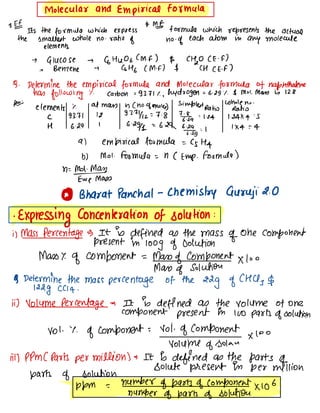 Molecular and Empirical formula
EF
Its the formula which express
the smallest whole no. ratio of
elements
MF
formula which represents the actual
no. of each atom in any molecule
→ Glucose → C6H12O6 (M.F) & CH2O (E.F)
→ Benzene → C6H6 (M.F) & CH (E.F)
Q. Determine the empirical formula and Molecular formula of naphthalene
has following %. Carbon = 93.71%, hydrogen = 6.29% & mol. Mass is 128
elements % at mass n (no. of moles) Simplest Ratio Whole no. Ratio
C 93.71 12 93.71/12 = 7.8 7.8/6.29 = 1.24 1.24x4 = 5
H 6.29 1 6.29/1 = 6.29 6.29/6.29 = 1 1x4 = 4
a) empirical formula = C5H4
b) Mol. formula = n (Emp. formula)
n = Mol. Mass
Emp Mass
Bharat Panchal - Chemistry Guruji 2.0
• Expressing Concentration of solution:
i) Mass Percentage → It is defined as the mass of one component
present in 100g of solution
Mass % of component = Mass of Component x 100
Mass of Solution
Q Determine the mass percentage of the 22g of CHCl3 &
122g CCl4.
ii) Volume Percentage → It is defined as the volume of one
component present in 100 parts of solution
Vol. % of Component = Vol. of Component x 100
Volume of solun
iii) PPm (Parts per million) → It is defined as the parts of
solute present in per million
parts of solution
ppm = number of parts of component x 10⁶
number of parts of solution